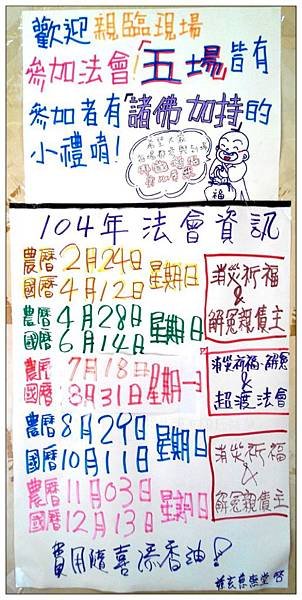 歡迎親臨現場
參加法會!「五場」皆有
參加者有「諸佛加持」的
小禮唷!
希望大眾
福
104年法會資訊
農曆2月24日 星期日
國曆4月12日
消災祈福
&
解冤親債主
農曆4月28日 星期日
國曆6月14日
農曆7月18日 星期一
國曆8月31日
消災祈福、解冤
&
超渡法會
農曆8月29日 星期日
國曆10月11日
消災祈福
&
解冤親債主
農曆11月03日 星期日
國曆12月13日
費用隨喜添香油!